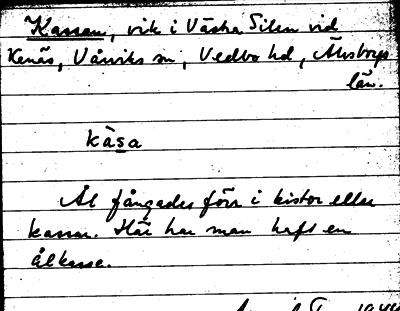 Kassen, vik i Västra Silen vid
Kenäs, Vårviks sn, Vedbo hd, Älvsborgs
län.
kasa
Ål fångades förr i kistor eller
kassar. Här har man haft en
ålkasse.